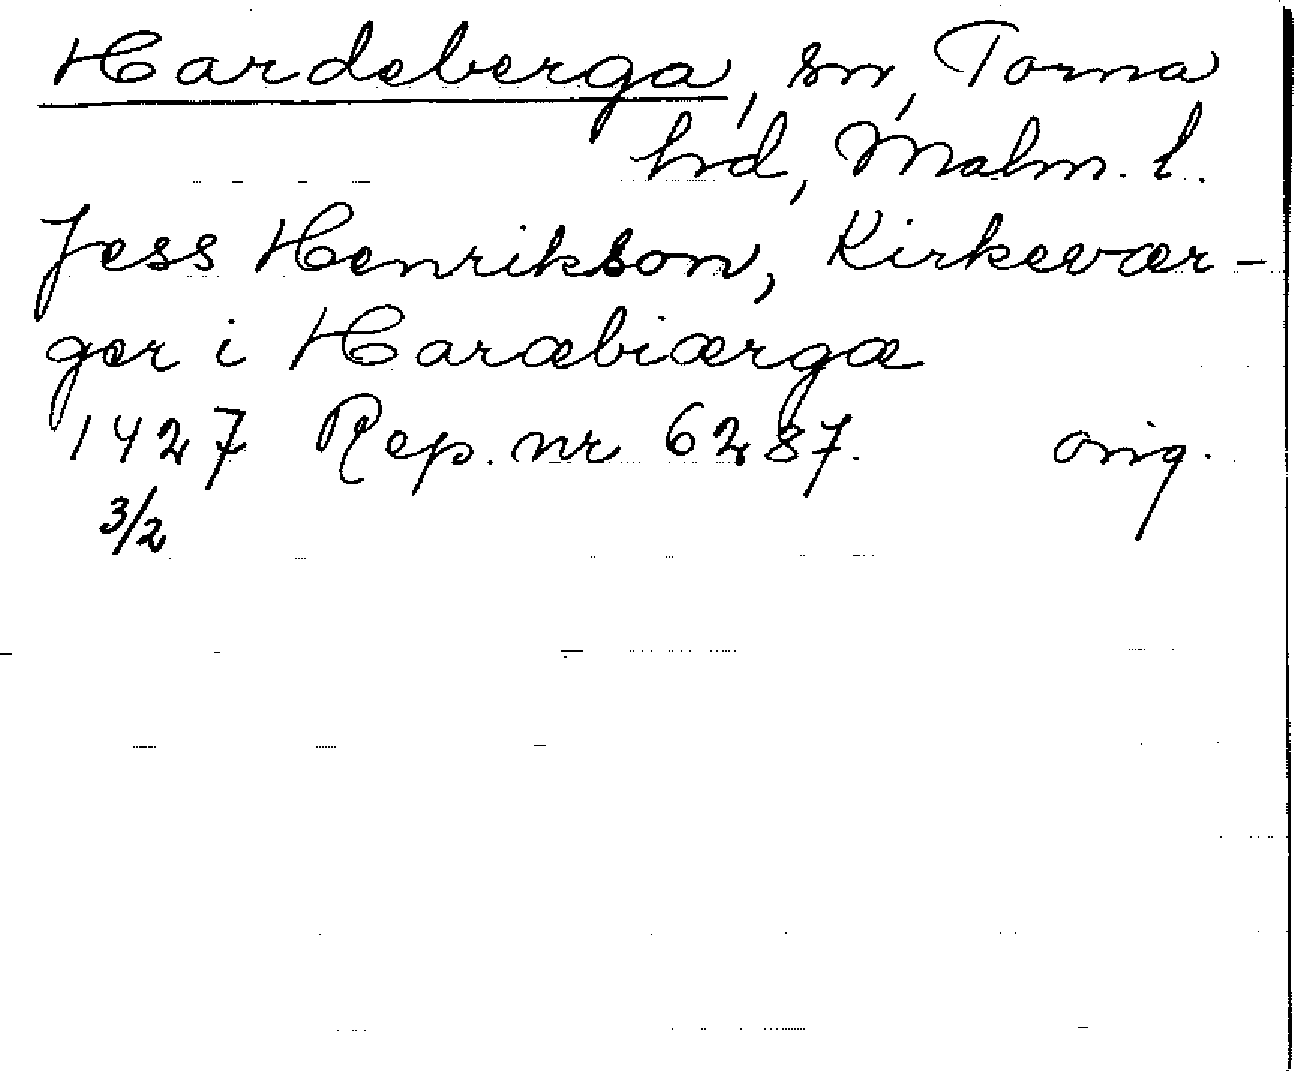 Hardeberga, sn, Torna
hd, Malm. l.
Jess Henrikson, Kirkevær-
ger i Haræbiærgæ
1427 Rep. nr 6287. orig.
3/2